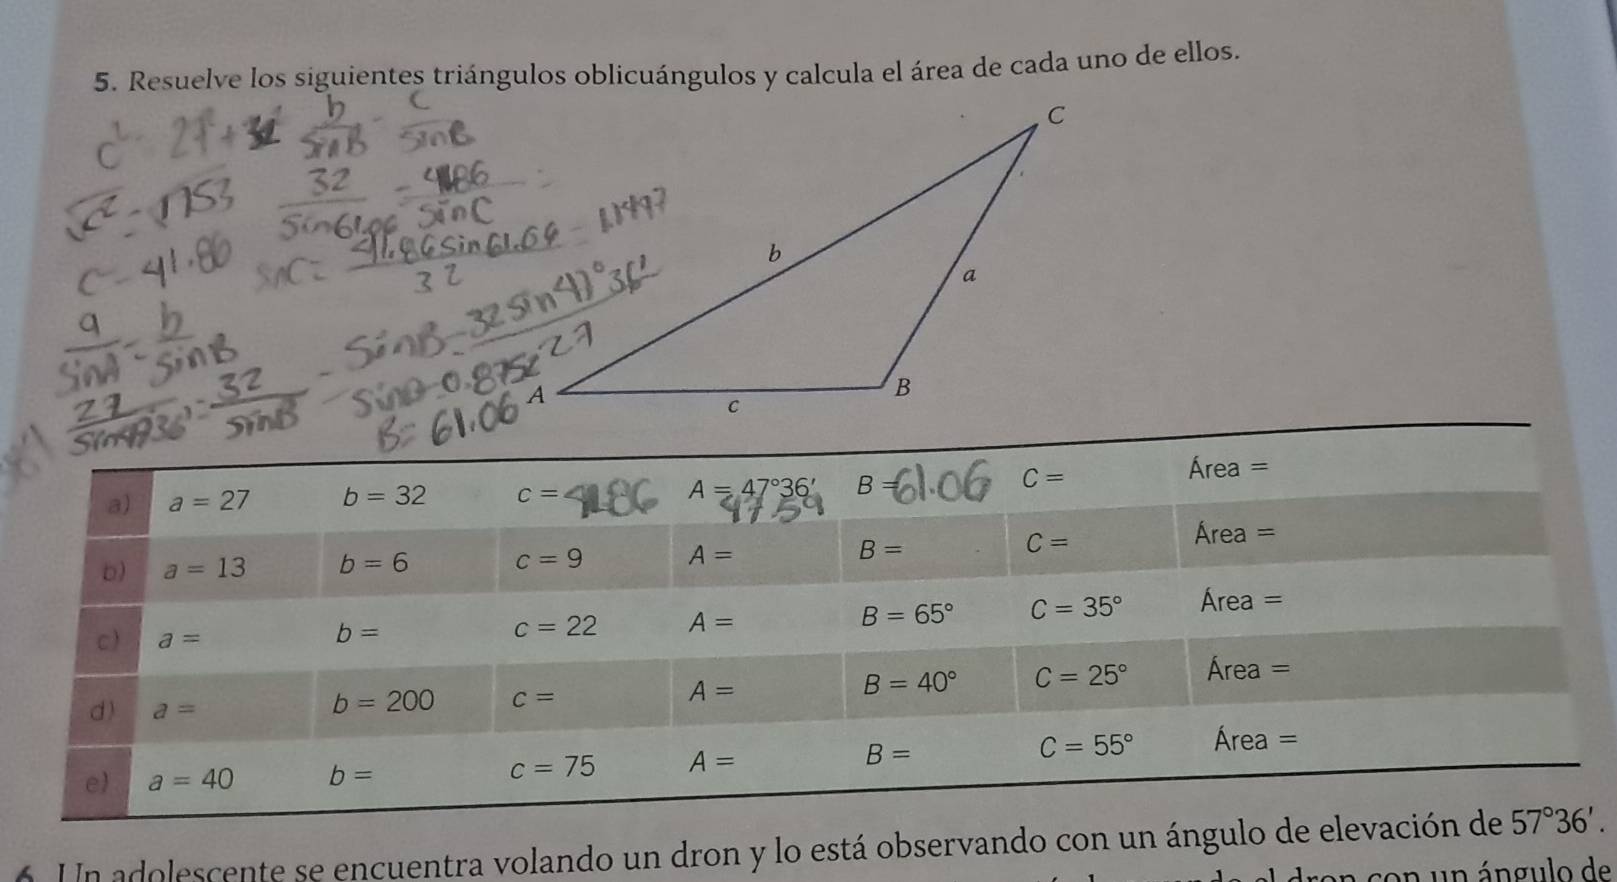 5. Resuelve los siguientes triángulos oblicuángulos y calcula el área de cada uno de ellos.
b c
sinB sinB
32 = 4186
sin61.06 sinC
c = 41.86
sinC = 41.86 sin 61.06 = 1.1447
32
a = b
sinA sinB
27 = 32
sin47°36' sinB
sinB = 32 sin 47°36'
27
B = 61.06
C
b
a
A
B
c
a) a = 27 b = 32 c = 4186 A = 47°36' B = 61.06 C = Área =
47.59
b) a = 13 b = 6 c = 9 A = B = C = Área =
c) a = b = c = 22 A = B = 65° C = 35° Área =
d) a = b = 200 c = A = B = 40° C = 25° Área =
e) a = 40 b = c = 75 A = B = C = 55° Área =
6. Un adolescente se encuentra volando un dron y lo está observando con un ángulo de elevación de 57°36'.
dron con un ángulo de